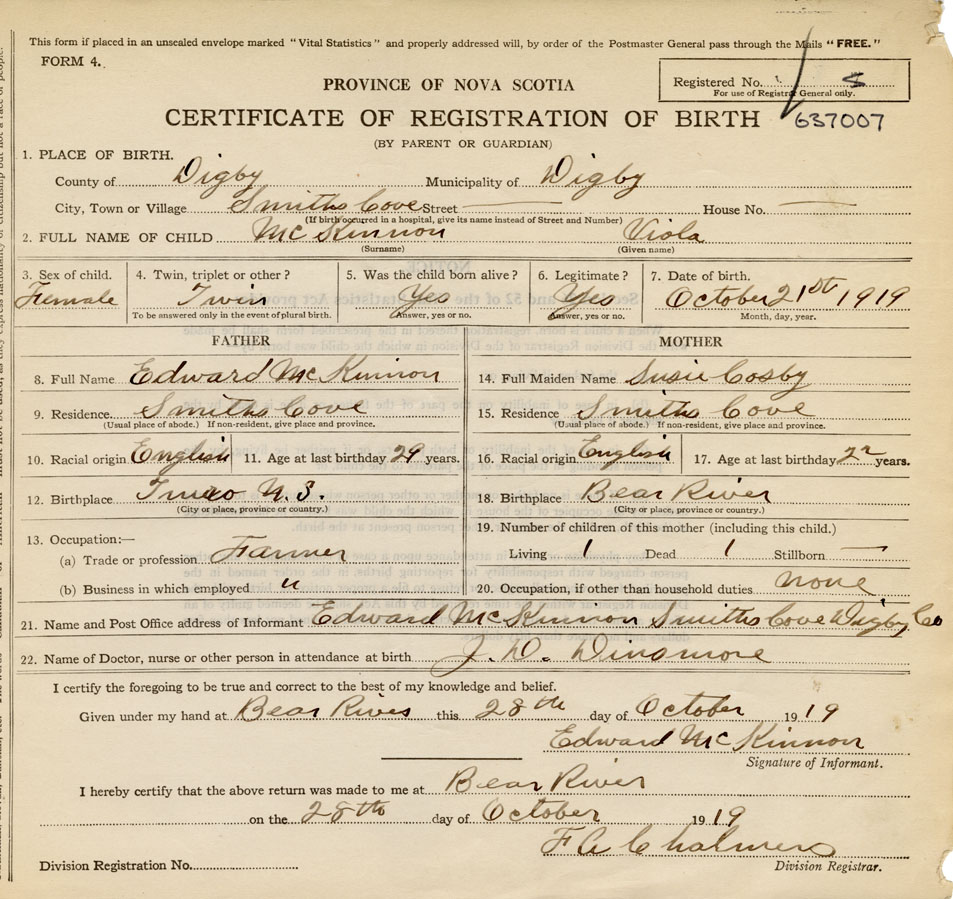 This form if placed in an unsealed envelope marked "Vital Statistics" and properly addressed will, by order of the Postmaster General pass through the Mails "FREE."
FORM 4.
Registered No. 8
For use of Registrar General only.
PROVINCE OF NOVA SCOTIA
CERTIFICATE OF REGISTRATION OF BIRTH 637007
(BY PARENT OR GUARDIAN)
1. PLACE OF BIRTH.
County of Digby Municipality of Digby
City, Town or Village Smiths Cove Street — House No. —
(If birth occurred in a hospital, give its name instead of Street and Number)
2. FULL NAME OF CHILD McKinnon Viola
(Surname) (Given name)
3. Sex of child. 4. Twin, triplet or other? 5. Was the child born alive? 6. Legitimate? 7. Date of birth.
Female Twin Yes Yes October 21st 1919
To be answered only in the event of plural birth. Answer, yes or no. Answer, yes or no. Month, day, year.
FATHER MOTHER
8. Full Name Edward McKinnon 14. Full Maiden Name Susie Cosby
9. Residence. Smiths Cove 15. Residence Smiths Cove
(Usual place of abode.) If non-resident, give place and province. (Usual place of abode.) If non-resident, give place and province.
10. Racial origin English 11. Age at last birthday 29 years. 16. Racial origin English 17. Age at last birthday 22 years.
12. Birthplace N.S. 18. Birthplace Bear River
(City or place, province or country.) (City or place, province or country.)
19. Number of children of this mother (including this child.)
13. Occupation:—
(a) Trade or profession Farmer Living 1 Dead 1 Stillborn —
(b) Business in which employed " 20. Occupation, if other than household duties none
21. Name and Post Office address of Informant Edward McKinnon Smiths Cove Digby Co
22. Name of Doctor, nurse or other person in attendance at birth J. D. Dinsmore
I certify the foregoing to be true and correct to the best of my knowledge and belief.
Given under my hand at Bear River this 28th day of October 1919
Edward McKinnon
Signature of Informant.
I hereby certify that the above return was made to me at Bear River
on the 28th day of October 1919
F A Chalmers
Division Registration No. Division Registrar.